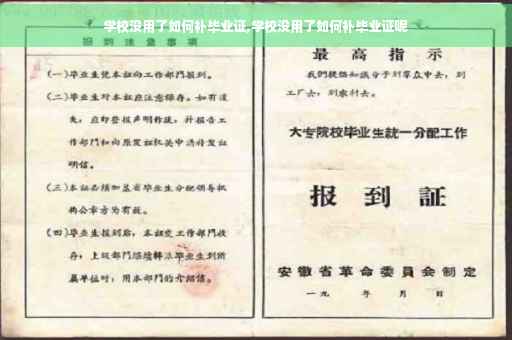 学校没用了如何补毕业证,学校没用了如何补毕业证呢
报到注意事项
(一)毕业生凭本证向工作部门报到。
(二)毕业生对本证应注意保存。如有遗
失，应即登报声明作废，并报告工
作部门和向原发证机关申请补发证
明信。
(三)本证必须加盖省毕业生分配领导机
构公章方为有效。
(四)毕业生报到后，本证交工作部门收
存；上级部门继续转派毕业生到所
属单位时，用本部门的介绍信。
最高指示
我们提倡知识分子到群众中去，到
工厂去，到农村去。
大专院校毕业生统一分配工作
报到证
安徽省革命委员会制定
一九 年 月 日